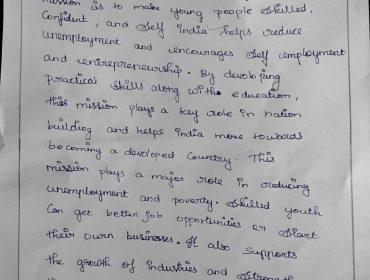 mission is to make young people skilled,
Confident, and self india helps reduce
unemployment and encourages self employment
and entrepreneurship. By developing
practical skills along with education,
this mission plays a key role in nation
building and helps india move towards
becoming a developed Country. This
mission plays a major role in reducing
unemployment and poverty. Skilled youth
Can get better job opportunities or start
their own businesses. It also supports
the growth of industries and